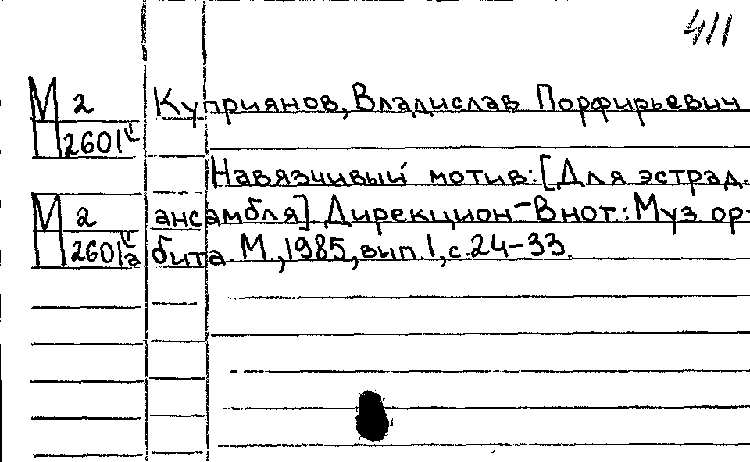 411
М 2 Куприянов, Владислав Порфирьевич
П 2601
Навязчивый мотив: [Для эстрад.
М 2 ансамбля]. Дирекцион – В нот.: Муз ор-
П 2601 а бита. М., 1985, вып. 1, с. 24–33.